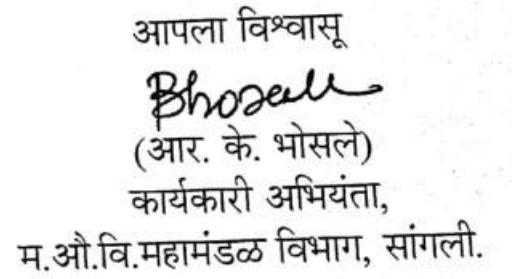 आपला विश्वासू
Bhosale
(आर. के. भोसले)
कार्यकारी अभियंता,
म.औ.वि.महामंडळ विभाग, सांगली.